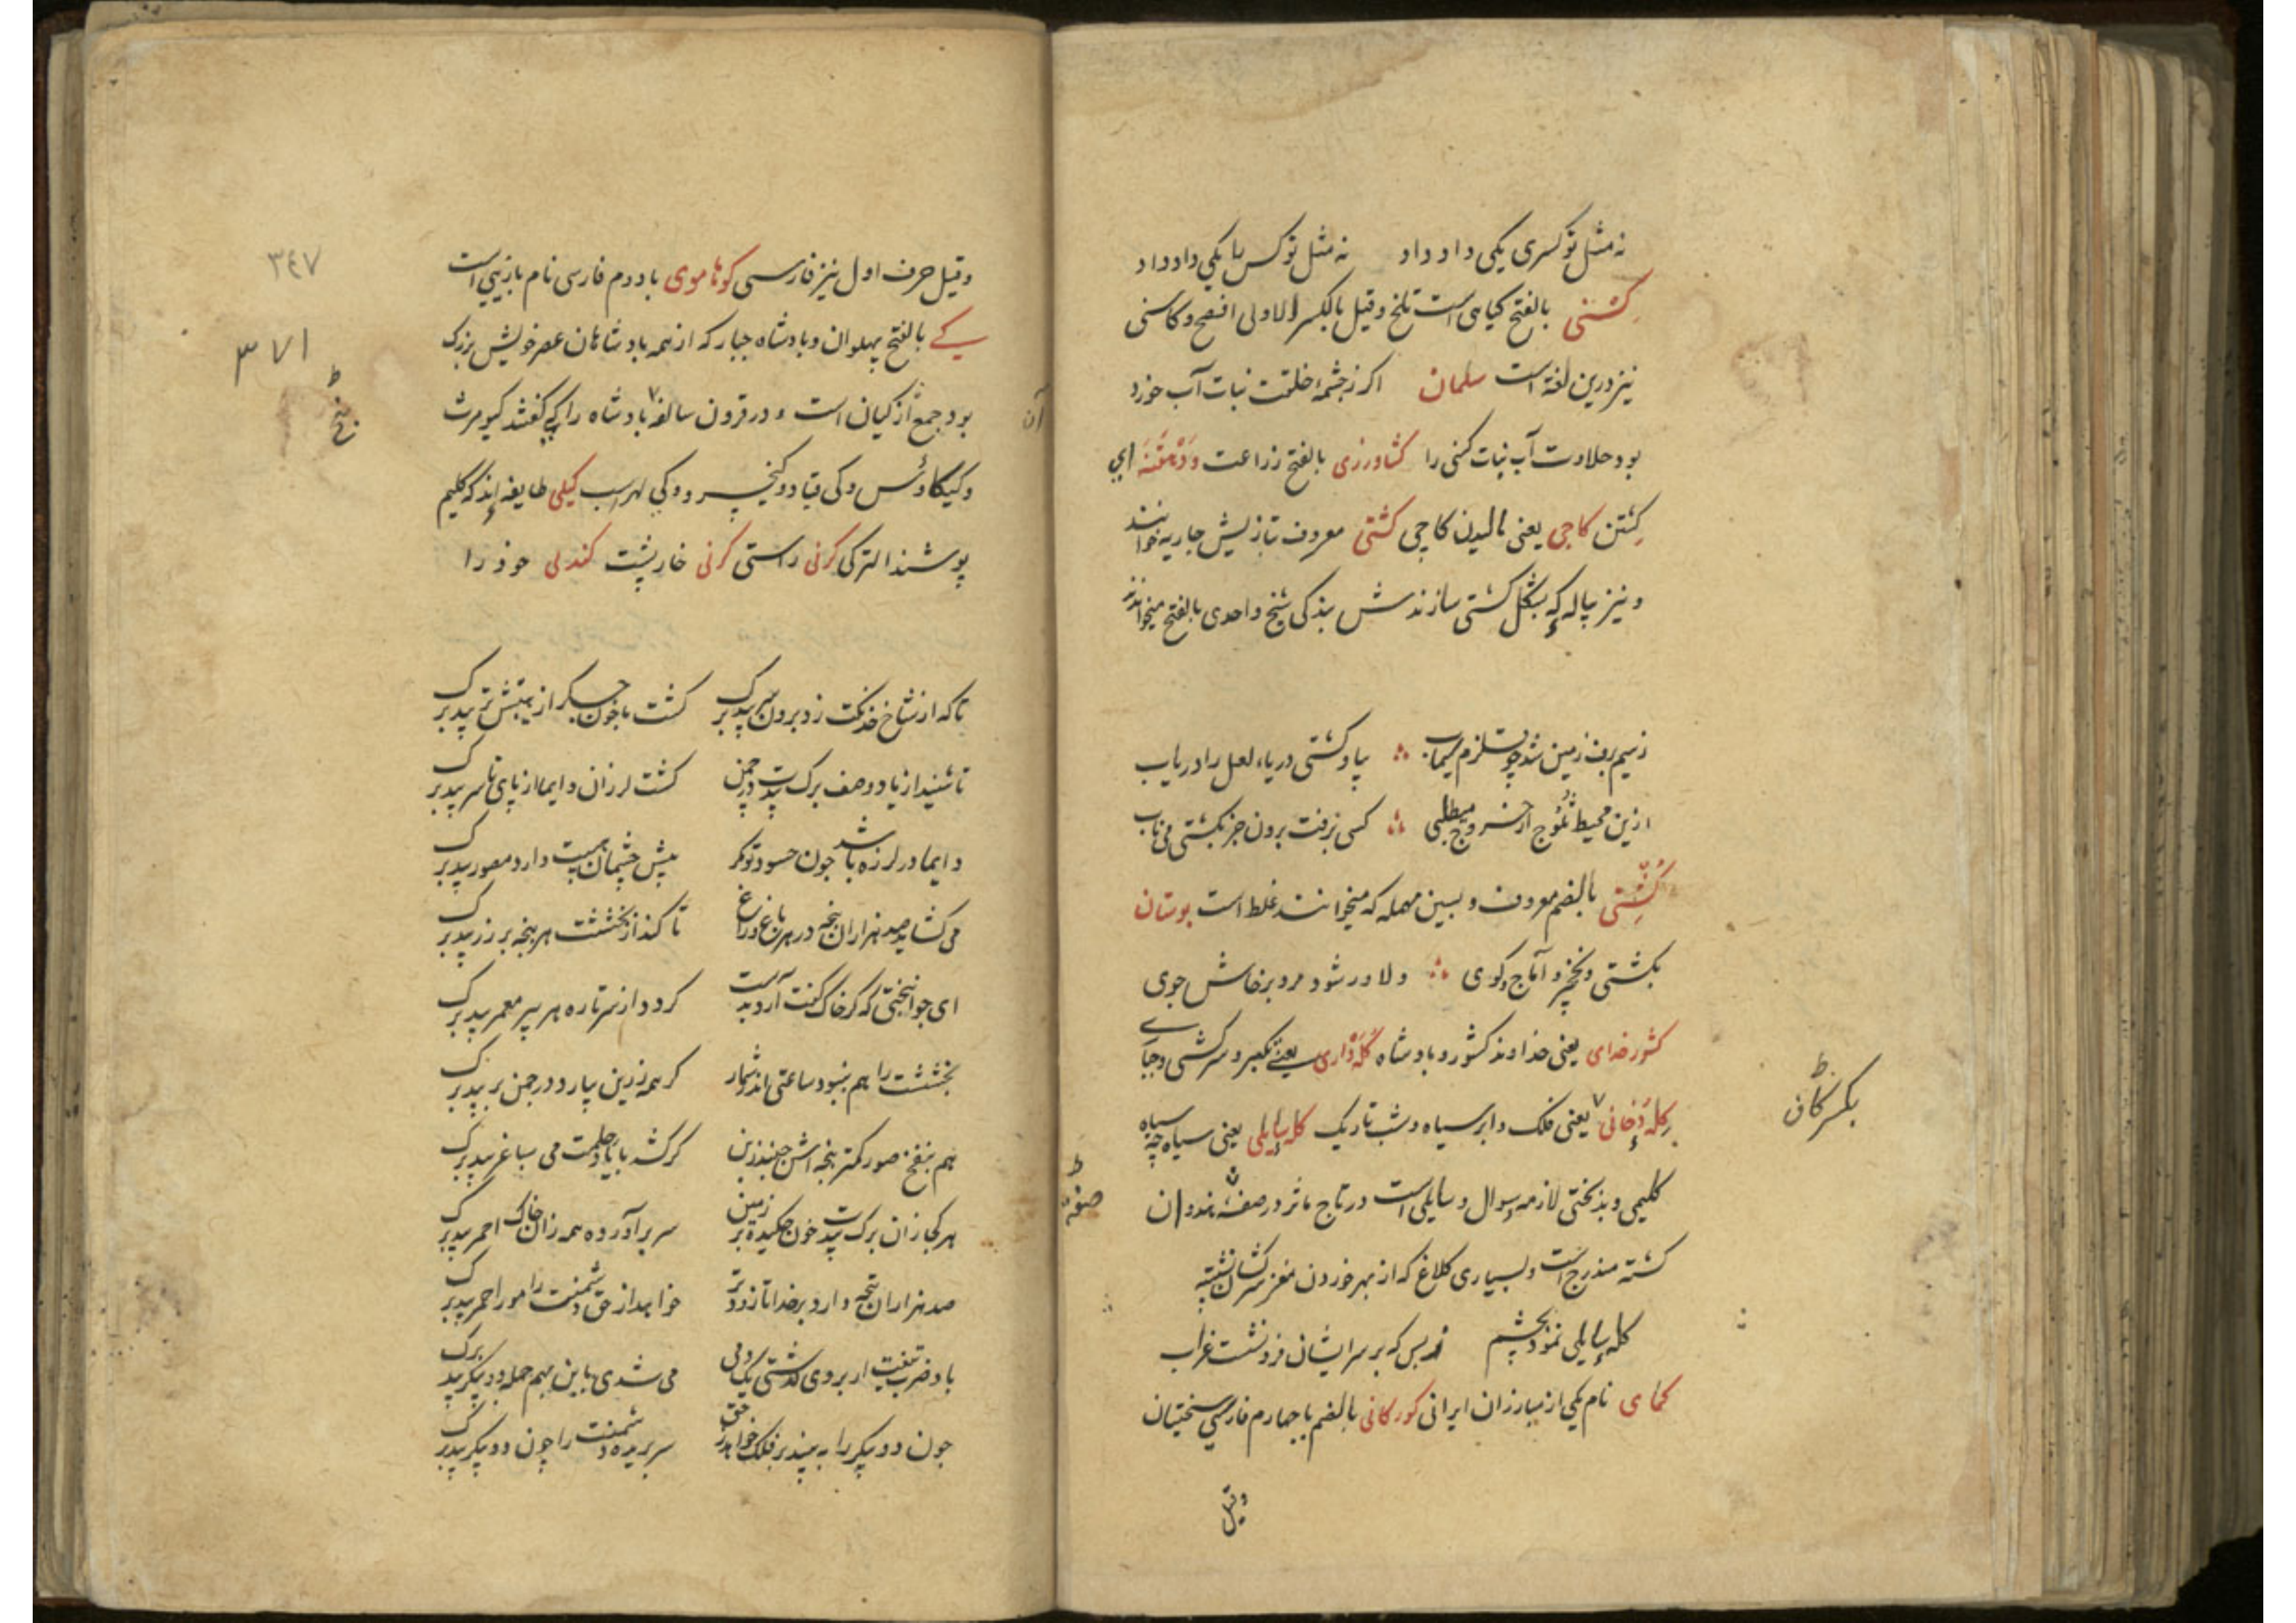 نه مثل تو کسری یکی داد داد نه مثل تو کس با یکی داد داد
کشنی بالفتح کیاهی است تلخ و قیل بالکسر الاولی افصح و کاسنی
نیز درین لغة است سلمان اکر ز چشمهٔ خلقت نبات آب خورد
بود حلاوت آب نبات کسنی را کشاورزی بالفتح زراعت و دهقنه ای
کشتن کاچی یعنی مالیدن کاچی کشتی معروف تازیش جاریه خوانند
و نیز پیاله که بشکل کشتی سازندش بندکی شیخ واحدی بالفتح میخواندند
ز سیم برف زمین شد چو قلزم سیماب بیا و کشتی دریاء لعل را دریاب
ازین محیط تموج از خروج میطلبی کسی نرفت برون جز بکشتی می ناب
کشتی بالضم معروف و بسین مهمله که میخوانند غلط است بوستان
بکشتی و نخچیر و آماج و کوی دلاور شود مرد پرخاش جوی
کشور خدای یعنی خداوند کشور و پادشاه کله داری یعنی تکبر و سرکشی و جای
کله دخانی یعنی فلک و ابر سیاه و شب تاریک کله سایلی یعنی سیاه چه سیاه
بکسر کاف
کلیمی و بدبختی لازمه سوال و سایلی است در تاج مآثر در صفهٔ هندوان
صفه
کشته مندرج است و بسیاری کلاغ که از بهر خوردن مغز سرکشان نشسته
کله سایلی نمود بچشم از بس که بر سرایشان فرو نشست غراب
کمای نام یکی از مبارزان ایرانی کورکانی بالضم با چهارم فارسی سختیان
وقیل
۳٤۷
وقیل حرف اول نیز فارسی کوتاموی با دوم فارسی نام بازیی است
۳۷۱
کے بالفتح پهلوان و پادشاه جبار که از همه پادشاهان عصر خویش بزرک
بود جمع آن کیان است و در قرون سالفه پادشاه را کی کفتند کیومرث
آن
و کیکاوس و کی قباد و کیخسرو و کی لهراسب کیلی طایفه اند که کلیم
پوشند الترکی کرنی راستی کرنی خارپشت کندلی خود را
تا که از شاخ خدنکت زد برون سر بیدبرک کشت با خون جکر از هیبتش تر بیدبرک
تا شنید از باد وصف برک بیدت در چمن کشت لرزان دایما از پای تا سر بیدبرک
دایما در لرزه باشد چون حسود تو مکر پیش چشمان هیبتت دارد مصور بیدبرک
می کشاید صد هزاران پنجه در هر باغ و راغ تا کند از بخششت هر پنجه پر زر بیدبرک
ای جوانبختی که کر خاک کفت آرد بدست کردد از سر تازه هر پیر معمر بیدبرک
بخششت را هم نبود ساعتی اندر شمار کر همه زرین ببارد در چمن بر بیدبرک
هم بنفخ صور کمتر پنجه اش جنبد زبن کر کشد با یاد حلمت می بساغر بیدبرک
هر کجا زان برک بیدت خون چکیده بر زمین سر برآورده همه زان خاک احمر بیدبرک
صد هزاران پنجه دارد بر خدا تا زودتر خواهد از حق دشمنت را مور احمر بیدبرک
باد ضرب تیغت ار بر وی کذشتی یک دمی می شدی با این همه حمله دو پیکر بیدبرک
چون دو پیکر را به بیند بر فلک خواهد ز حق سر بریده دشمنت را چون دو پیکر بیدبرک